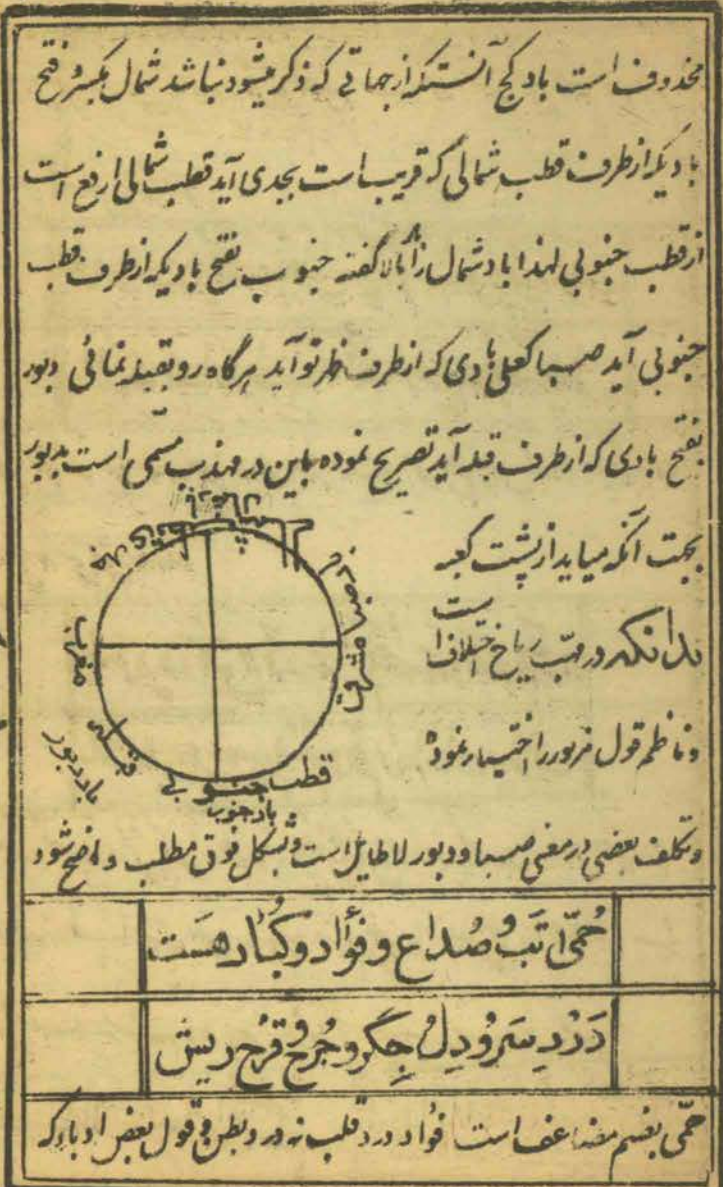 محذوف است باد کج آنستکه از جهاتی که ذکر میشود نباشد شمال بکسر و فتح
بادیکه از طرف قطب شمالی که قریب است بجدی آید قطب شمالی ارفع است
از قطب جنوبی لهذا باد شمال را بالا گفته جنوب بفتح بادیکه از طرف قطب
جنوبی آید صبا کعلی بادی که از طرف ظهر تو آید هر گاه رو بقبله نمائی دبور
بفتح بادی که از طرف قبله آید تصریح نموده باین در مهذب مسمی است بدبور
بجهت آنکه میاید از پشت کعبه
بدانکه در مهب ریاح اختلاف است
و ناظم قول مزبور را اختیار نموده
مغرب
مشرق
قبله
باد دبور
قطب جنوبی
باد جنوب
و تکلف بعضی در معنی صبا و دبور لاطایل است و بشکل فوق مطلب واضح شود
حُمّیٰ تَب و صُداع و فُؤاد و کُبٰاد هَست
دَرْدِ سَر و دِل و جِگَر و جُرح و قَرْح ریش
حمی بضم مضاعف است فؤاد درد قلب نه درد بطن و قول بعض ادباء که